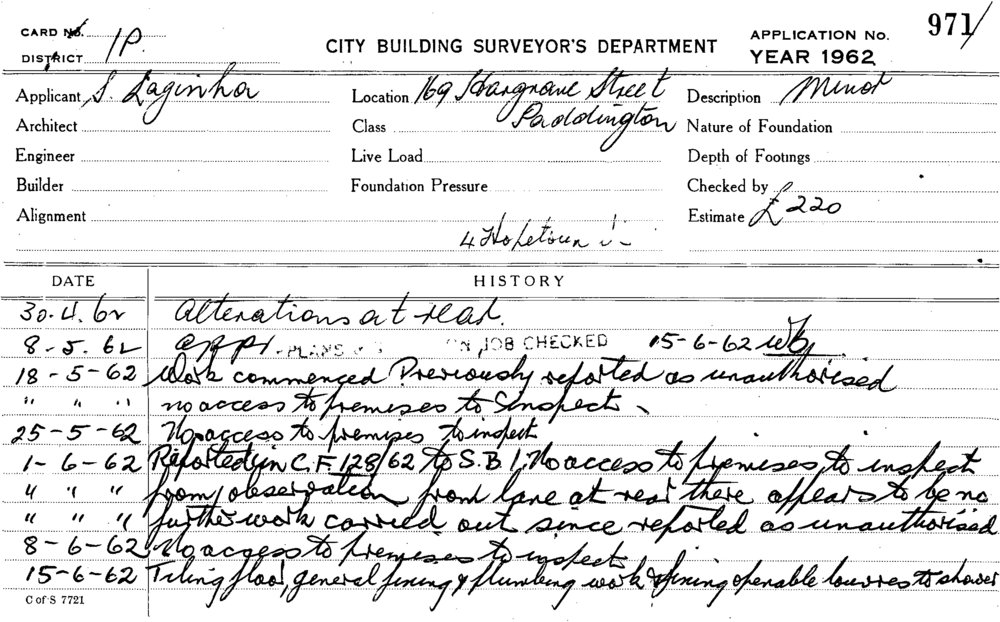 CARD No. 1P.
DISTRICT
CITY BUILDING SURVEYOR'S DEPARTMENT
APPLICATION No. 971/
YEAR 1962
Applicant S. Laginha
Location 169 Hargrave Street
Paddington
Description Minor
Architect
Class
Nature of Foundation
Engineer
Live Load
Depth of Footings
Builder
Foundation Pressure
Checked by
Alignment
Estimate £220
4 Hopetoun
DATE HISTORY
30.4.62 Alterations at rear.
8-5.62 appr. PLANS ON JOB CHECKED 15-6-62
18-5-62 Work commenced Previously reported as unauthorised
" " " no access to premises to inspect
25-5-62 No access to premises to inspect
1-6-62 Reported in C.F. 128/62 to S.B.I. No access to premises to inspect
" " " from observation from lane at rear there appears to be no
" " " further work carried out since reported as unauthorised
8-6-62 No access to premises to inspect
15-6-62 Tiling floor, general fixing & plumbing work & fixing openable louvres to shower
C of S 7721